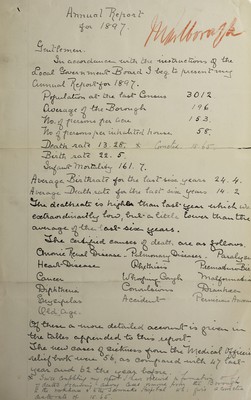 Annual Report
for 1897.
Marlborough
Gentlemen.
In accordance with the instructions of the
Local Government Board I beg to present my
Annual Report for 1897.
Population at the last Census 3012
Average of the Borough 196
No of persons per acre 15.3
No of persons per inhabited house 5.8.
Death rate 13.28. x
Birth rate 22.5.
Infant Mortality 161.7.
Average Birthrate for the last six years 24.4.
Average Death rate for the last six years 14.2
The deathrate is higher than last year which was
extraordinarily low, but a little lower than the
average of the last six years.
The certified causes of death, are as follows.
Chronic Renal Disease - Pulmonary Disease - Paralysis
Heart Disease Phthisis
Cancer Whooping Cough
Diphtheria Convulsions
Erysipelas Accident
Old Age.
Of them a more detailed account is given in
the tables appended to this report.
The new cases of sickness from the Medical Officers
relief book were 56 as compared with 67 last
year and 62 the year before